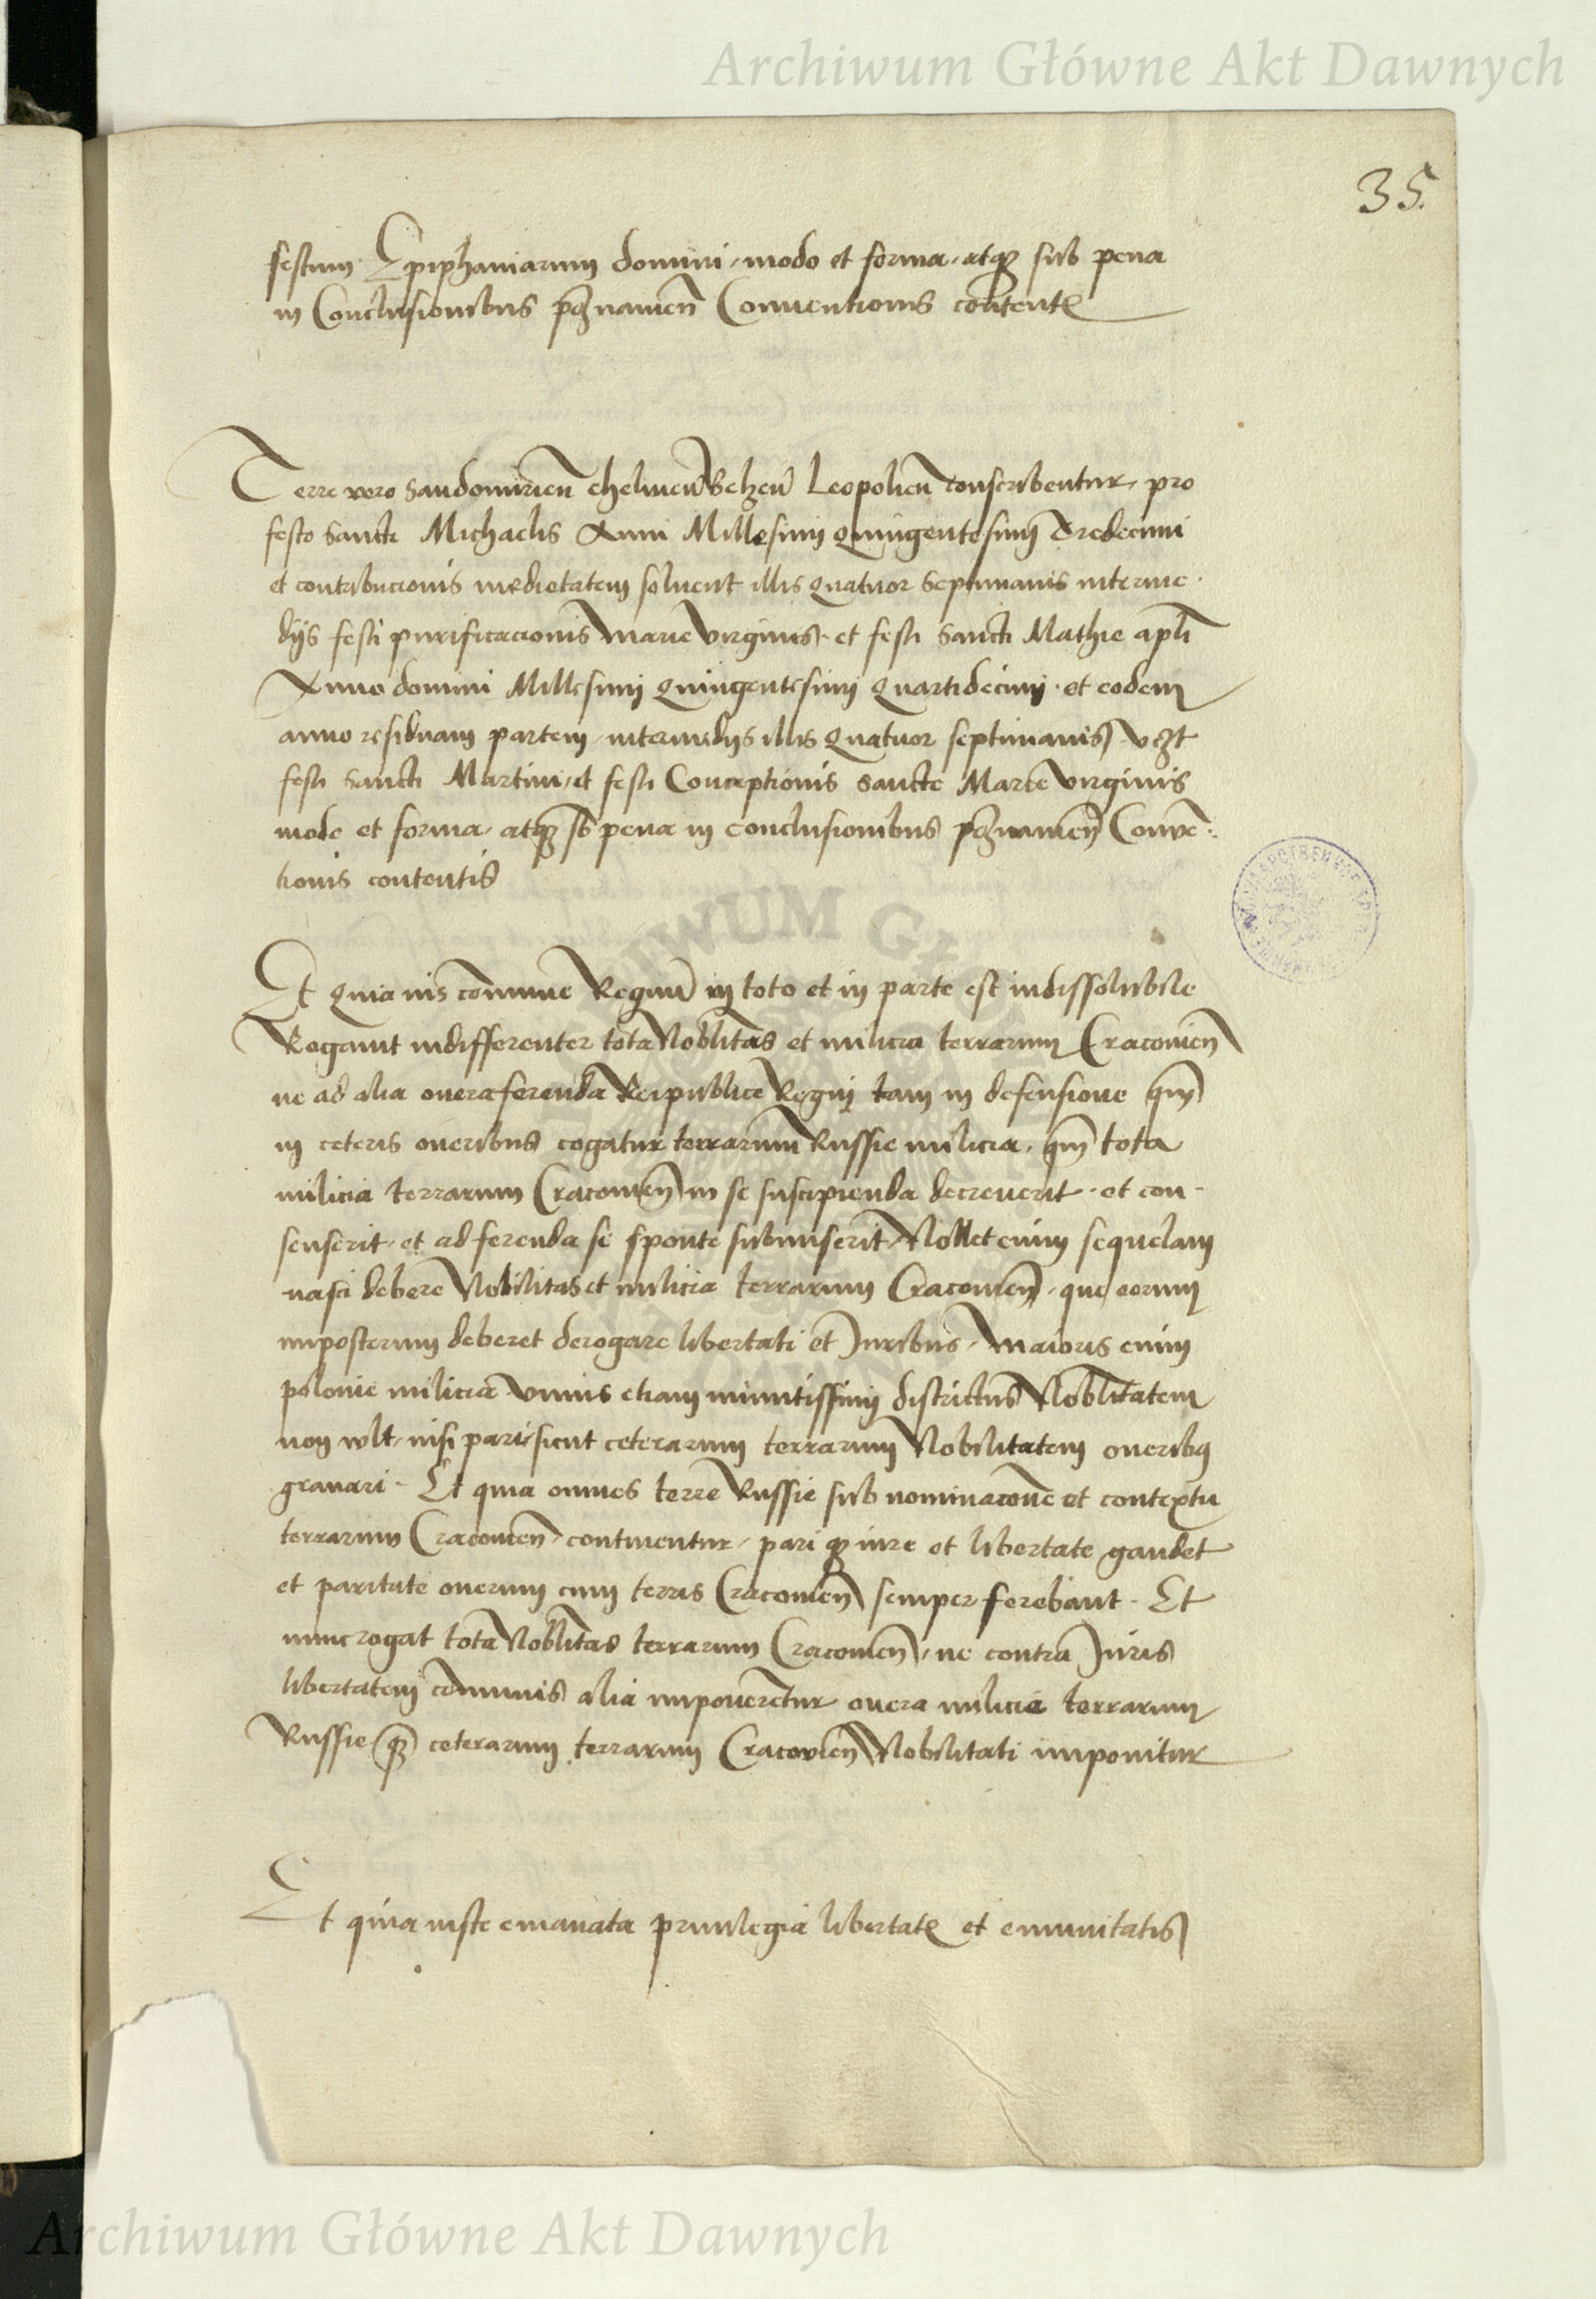 Archiwum Główne Akt Dawnych
35.
festum Epiphaniarum domini, modo et forma, atq3 sub pena
in Conclusionibus p3namen̄ Conuentionis content
Terre vero Sandomirien̄ chelmen̄ Belzen̄ Leopolien̄ conscribentur, pro
festo Sancti Michaelis Anni Millesimi Quingentesimi Tredecimi
et contribucionis medietatem soluent illis quatuor Septimanis interme-
dijs festi purificacionis Marie Virginis et festi Sancti Mathie apli
Anno domini Millesimi Quingentesimi Quartidecimi et eodem
anno residuam partem, intermedijs illis Quatuor septimanis vz̄t
festi Sancti Martini, et festi Conceptionis Sancte Marie Virginis
modo et forma, atq3 sb pena in conclusionibus p3namen̄ Conuē-
tionis contentis
Et Quia ius cōmune Regnū in toto et in parte est indissolubile
Rogant indifferenter tota Noblitas et milicia terrarum Cracouien̄
ne ad alia onera ferenda Reipublice Regni tam in defensione qm̄
in ceteris oneribus cogatur terrarum Russie milicia, qm̄ tota
milicia terrarum Cracouien̄ in se suscipienda decreuerit et con-
senserit, et ad ferenda se sponte submiserit, Nollet enim sequelam
nasci debere Nobilitas et milicia terrarum Cracouien̄, que eorum
imposterum deberet derogare libertati et Iuribus, Maioris enim
polonie milicia vnius etiam minutissimi districtus Noblitatem
non wlt, nisi pari, sicut ceterarum terrarum Nobilitatem oneribus
grauari - Et quia omnes terre Russie sub nominacōne et contextu
terrarum Cracouien̄ continentur, pari q3 iure et libertate gaudet
et paritate onerum cum terris Cracouien̄ semper ferebant - Et
nunc rogat tota Noblitas terrarum Cracouien̄, ne contra Iuris
libertatem cōmunis alia imponerētur onera milicie terrarum
Russie q3 ceterarum terrarum Cracouien̄ Nobilitati imponitur
Et quia iuste emanata priuilegia libertat et emunitatis
Archiwum Główne Akt Dawnych